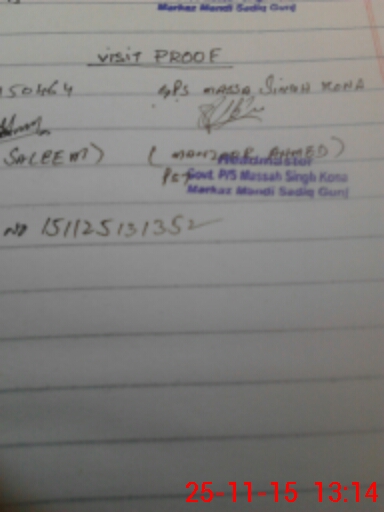 Markaz Mandi Sadiq Gunj
VISIT PROOF
150464 GPS MASSA SINGH KONA
SALEEM) (MANZOOR AHMED)
Headmaster
PST Govt. P/S Massah Singh Kona
Markaz Mandi Sadiq Gunj
NO 151125131352
25-11-15 13:14